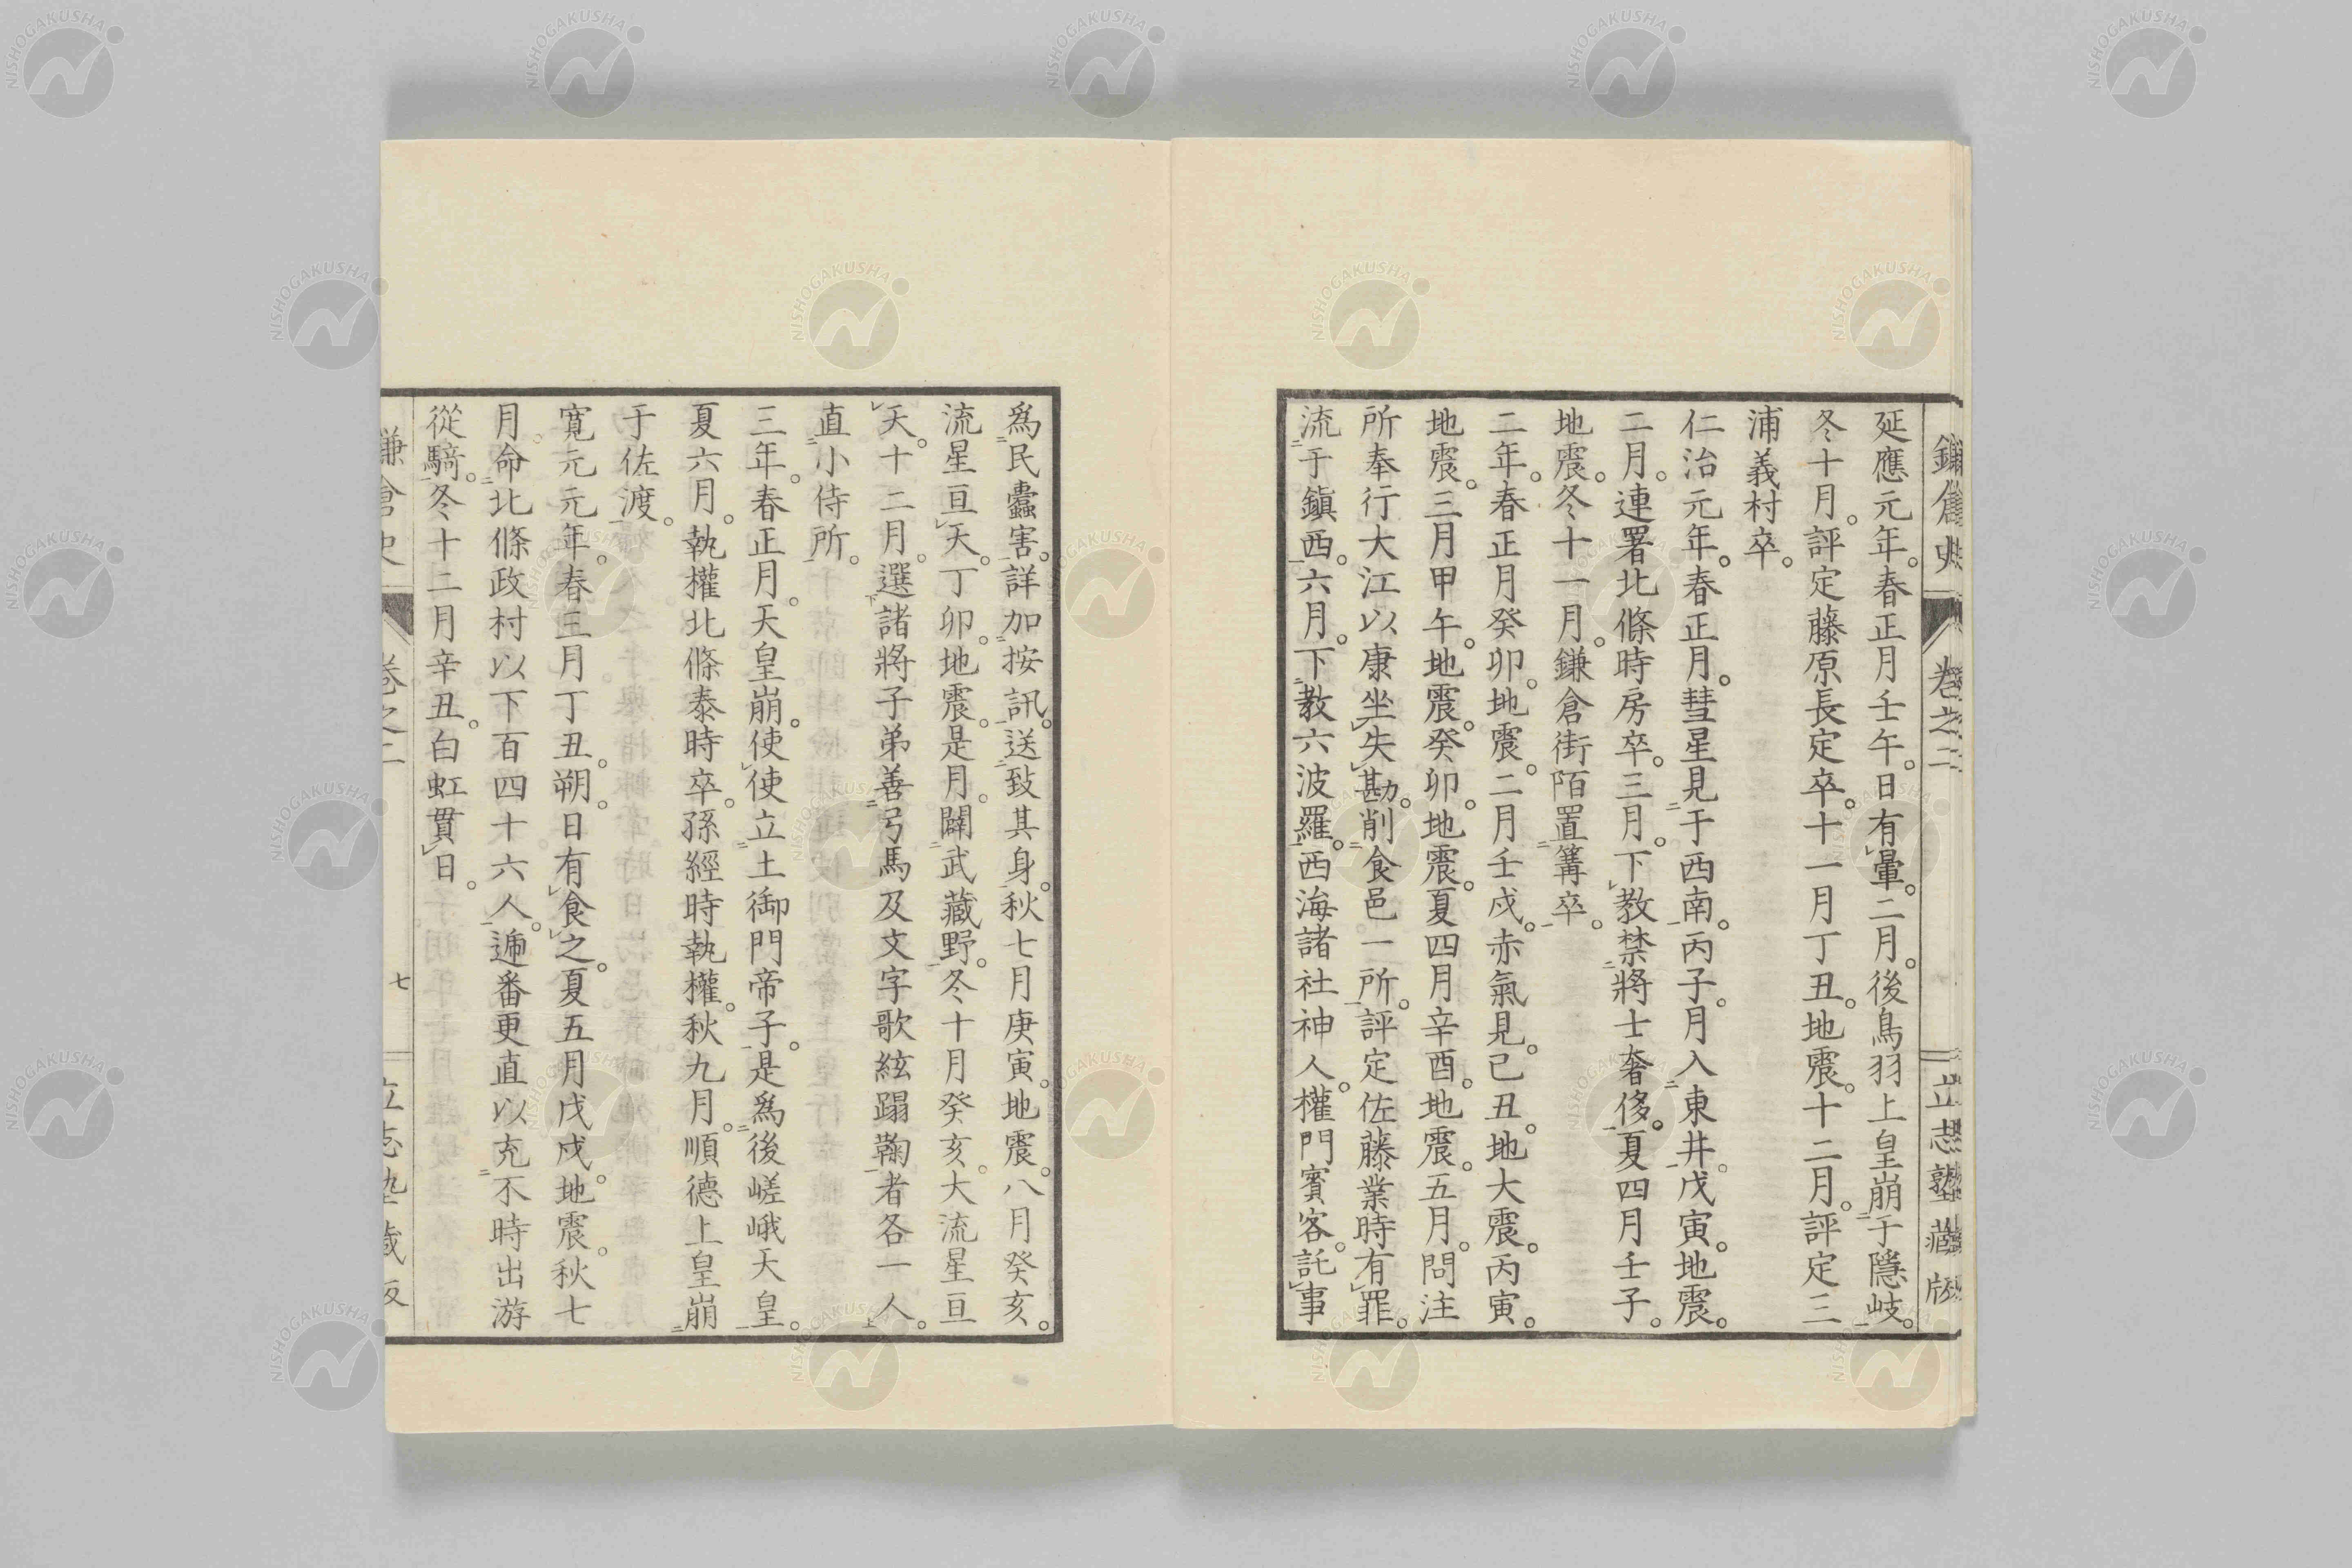 延應元年。春正月壬午。日有暈。二月。後鳥羽上皇崩于隱岐。
冬十月。評定藤原長定卒。十一月丁丑。地震。十二月。評定三
浦義村卒。
仁治元年。春正月。彗星見于西南。丙子。月入東井。戊寅。地震。
二月。連署北條時房卒。三月。下教禁將士奢侈。夏四月壬子。
地震。冬十一月。鎌倉街陌置篝卒。
二年。春正月癸卯。地震。二月壬戌。赤氣見。己丑。地大震。丙寅。
地震。三月甲午。地震。癸卯。地震。夏四月辛酉。地震。五月。問注
所奉行大江以康坐失勘。削食邑一所。評定佐藤業時有罪。
流于鎭西。六月。下教六波羅。西海諸社神人。權門賓客。託事
爲民蠹害。詳加按訊。送致其身。秋七月庚寅。地震。八月癸亥。
流星亘天。丁卯。地震。是月。闢武藏野。冬十月癸亥。大流星亘
天。十二月。選諸將子弟善弓馬及文字歌絃蹋鞠者各一人。
直小侍所。
三年。春正月。天皇崩。使使立土御門帝子。是爲後嵯峨天皇。
夏六月。執權北條泰時卒。孫經時執權。秋九月。順德上皇崩
于佐渡。
寬元元年。春三月丁丑。朔。日有食之。夏五月戊戌。地震。秋七
月。命北條政村以下百四十六人。遞番更直以充不時出游
從騎。冬十二月辛丑。白虹貫日。
鎌倉史
卷之二
七
立志塾藏版
NISHOGAKUSHA